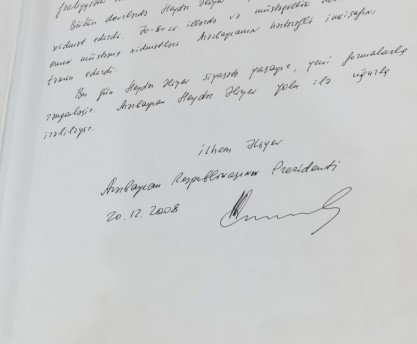 Bütün dövrlərdə Heydər Əliyev
xidmət edirdi. 70-80-cı illərdə və müstəqillik
onun müstəsna xidmətləri Azərbaycanın hərtərəfli inkişafını
təmin edirdi.
Bu gün Heydər Əliyev siyasəti yaşayır, yeni formalarla
zənginləşir. Azərbaycan Heydər Əliyev yolu ilə uğurla
irəliləyir.
İlham Əliyev
Azərbaycan Respublikasının Prezidenti
20.12.2008